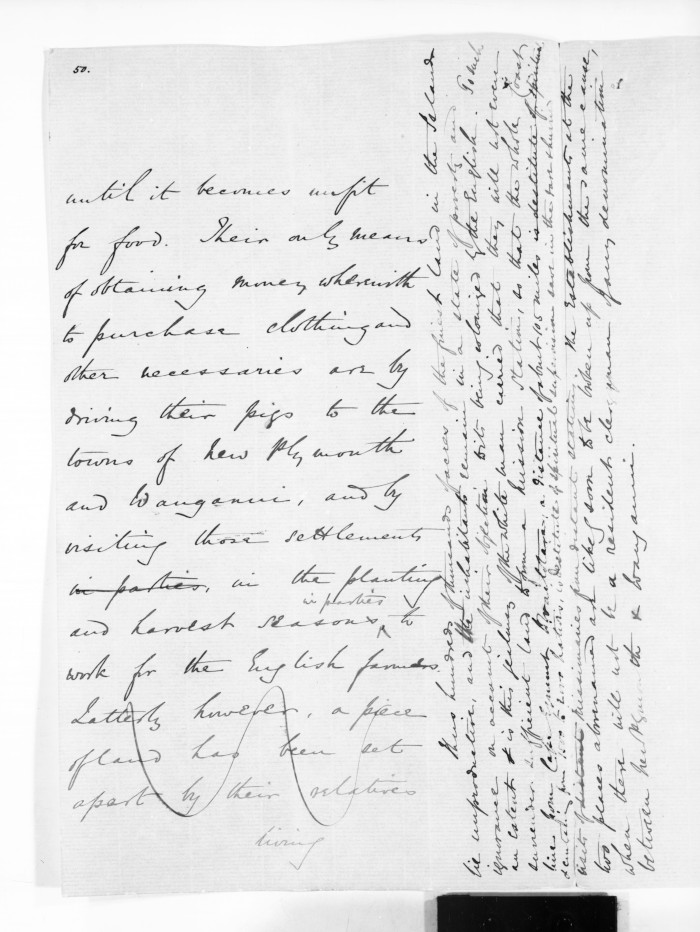 50.
until it becomes unfit
for food. Their only means
of obtaining money wherewith
to purchase clothing and
other necessaries are by
driving their pigs to the
towns of New Plymouth
and Wanganui, and by
visiting those settlements
in parties, in the planting
in parties
and harvest seasons, to
work for the English farmers.
Latterly however, a piece
of land has been set
apart by their relatives
living
Thus hundreds of thousands of acres of the finest land in the Island
lie unproductive, and the inhabitants remain in a state of poverty and
ignorance on account of their objection to its being colonized by the English. To such
an extent is this jealousy of the white man carried that they will not even
surrender sufficient land to form a mission station, so that the whole Coast
line from Cape Egmont to a distance of about 105 miles is destitute of
visits of missionaries from distant stations, the Establishments at the
two places abovenamed are likely soon to be broken up from the same cause,
when there will not be a resident clergyman of any denomination
between New Plymouth & Wanganui.